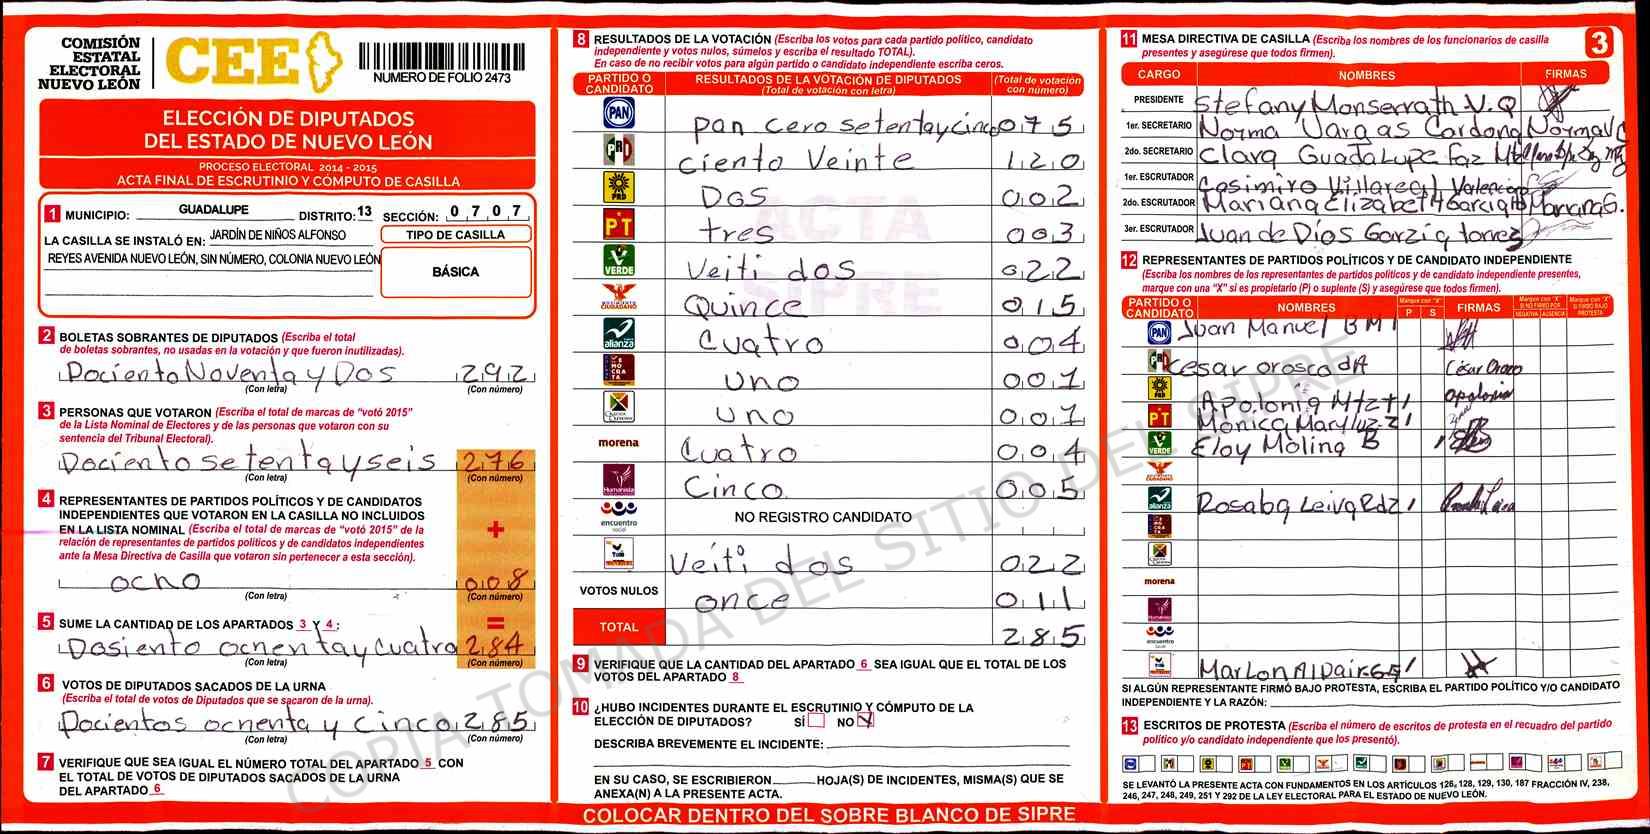 COMISIÓN
ESTATAL
ELECTORAL
NUEVO LEÓN
CEE
NUMERO DE FOLIO 2473
ELECCIÓN DE DIPUTADOS
DEL ESTADO DE NUEVO LEÓN
PROCESO ELECTORAL 2014 - 2015
ACTA FINAL DE ESCRUTINIO Y CÓMPUTO DE CASILLA
1 MUNICIPIO: GUADALUPE DISTRITO: 13 SECCIÓN: 0 7 0 7
LA CASILLA SE INSTALÓ EN: JARDÍN DE NIÑOS ALFONSO
REYES AVENIDA NUEVO LEÓN, SIN NÚMERO, COLONIA NUEVO LEÓN
TIPO DE CASILLA
BÁSICA
2 BOLETAS SOBRANTES DE DIPUTADOS (Escriba el total
de boletas sobrantes, no usadas en la votación y que fueron inutilizadas).
Dociento Noventa y Dos 292
(Con letra) (Con número)
3 PERSONAS QUE VOTARON (Escriba el total de marcas de "votó 2015"
de la Lista Nominal de Electores y de las personas que votaron con su
sentencia del Tribunal Electoral).
Dociento setenta y seis 276
(Con letra) (Con número)
4 REPRESENTANTES DE PARTIDOS POLÍTICOS Y DE CANDIDATOS
INDEPENDIENTES QUE VOTARON EN LA CASILLA NO INCLUIDOS
EN LA LISTA NOMINAL (Escriba el total de marcas de "votó 2015" de la
relación de representantes de partidos políticos y de candidatos independientes
ante la Mesa Directiva de Casilla que votaron sin pertenecer a esta sección).
+
ocho 008
(Con letra) (Con número)
5 SUME LA CANTIDAD DE LOS APARTADOS 3 Y 4:
=
Dosiento ochenta y cuatro 284
(Con letra) (Con número)
6 VOTOS DE DIPUTADOS SACADOS DE LA URNA
(Escriba el total de votos de Diputados que se sacaron de la urna).
Docientos ochenta y cinco 285
(Con letra) (Con número)
7 VERIFIQUE QUE SEA IGUAL EL NÚMERO TOTAL DEL APARTADO 5 CON
EL TOTAL DE VOTOS DE DIPUTADOS SACADOS DE LA URNA
DEL APARTADO 6
8 RESULTADOS DE LA VOTACIÓN (Escriba los votos para cada partido político, candidato
independiente y votos nulos, súmelos y escriba el resultado TOTAL).
En caso de no recibir votos para algún partido o candidato independiente escriba ceros.
PARTIDO O CANDIDATO RESULTADOS DE LA VOTACIÓN DE DIPUTADOS (Total de votación con letra) (Total de votación con número)
PAN pan cero setenta y cinco 075
PRI ciento Veinte 120
PRD Dos 002
PT tres 003
VERDE Veiti dos 022
Quince 015
alianza Cuatro 004
uno 001
uno 001
morena Cuatro 004
Humanista Cinco 005
encuentro social NO REGISTRO CANDIDATO
Veiti dos 022
VOTOS NULOS once 011
TOTAL 285
9 VERIFIQUE QUE LA CANTIDAD DEL APARTADO 6 SEA IGUAL QUE EL TOTAL DE LOS
VOTOS DEL APARTADO 8
10 ¿HUBO INCIDENTES DURANTE EL ESCRUTINIO Y CÓMPUTO DE LA
ELECCIÓN DE DIPUTADOS? SÍ NO X
DESCRIBA BREVEMENTE EL INCIDENTE:
EN SU CASO, SE ESCRIBIERON HOJA(S) DE INCIDENTES, MISMA(S) QUE SE
ANEXA(N) A LA PRESENTE ACTA.
COLOCAR DENTRO DEL SOBRE BLANCO DE SIPRE
11 MESA DIRECTIVA DE CASILLA (Escriba los nombres de los funcionarios de casilla
presentes y asegúrese que todos firmen).
3
CARGO NOMBRES FIRMAS
PRESIDENTE Stefany Monserrath V.Q
1er. SECRETARIO Norma Vargas Cardona Norma V C
2do. SECRETARIO Clara Guadalupe Faz Mtz
1er. ESCRUTADOR Casimiro Villareal Valencia
2do. ESCRUTADOR Mariana Elizabeth Garcia Mariana G.
3er. ESCRUTADOR Juan de Dios Garzia torrez
12 REPRESENTANTES DE PARTIDOS POLÍTICOS Y DE CANDIDATO INDEPENDIENTE
(Escriba los nombres de los representantes de partidos políticos y de candidato independiente presentes,
marque con una "X" si es propietario (P) o suplente (S) y asegúrese que todos firmen).
PARTIDO O CANDIDATO NOMBRES Marque con "X" P S FIRMAS Marque con "X" SI NO FIRMÓ POR NEGATIVA AUSENCIA Marque con "X" SI FIRMÓ BAJO PROTESTA
PAN Juan Manuel B M
PRI Cesar orosco dA César Orozco
PRD Apolonia Mtz apolonia
PT Monica
VERDE Eloy Molina B
alianza Rosaba Leiva Rdz
morena
Humanista
encuentro social
Marlon Aldair
SI ALGÚN REPRESENTANTE FIRMÓ BAJO PROTESTA, ESCRIBA EL PARTIDO POLÍTICO Y/O CANDIDATO
INDEPENDIENTE Y LA RAZÓN:
13 ESCRITOS DE PROTESTA (Escriba el número de escritos de protesta en el recuadro del partido
político y/o candidato independiente que los presentó).
SE LEVANTÓ LA PRESENTE ACTA CON FUNDAMENTOS EN LOS ARTÍCULOS 126, 128, 129, 130, 187 FRACCIÓN IV, 238,
246, 247, 248, 249, 251 Y 292 DE LA LEY ELECTORAL PARA EL ESTADO DE NUEVO LEÓN.
ACTA
SIPRE
COPIA TOMADA DEL SITIO DEL SIPRE